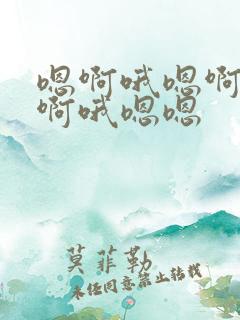 嗯啊哦嗯啊
啊哦嗯嗯
莫菲勒
未经同意禁止转载